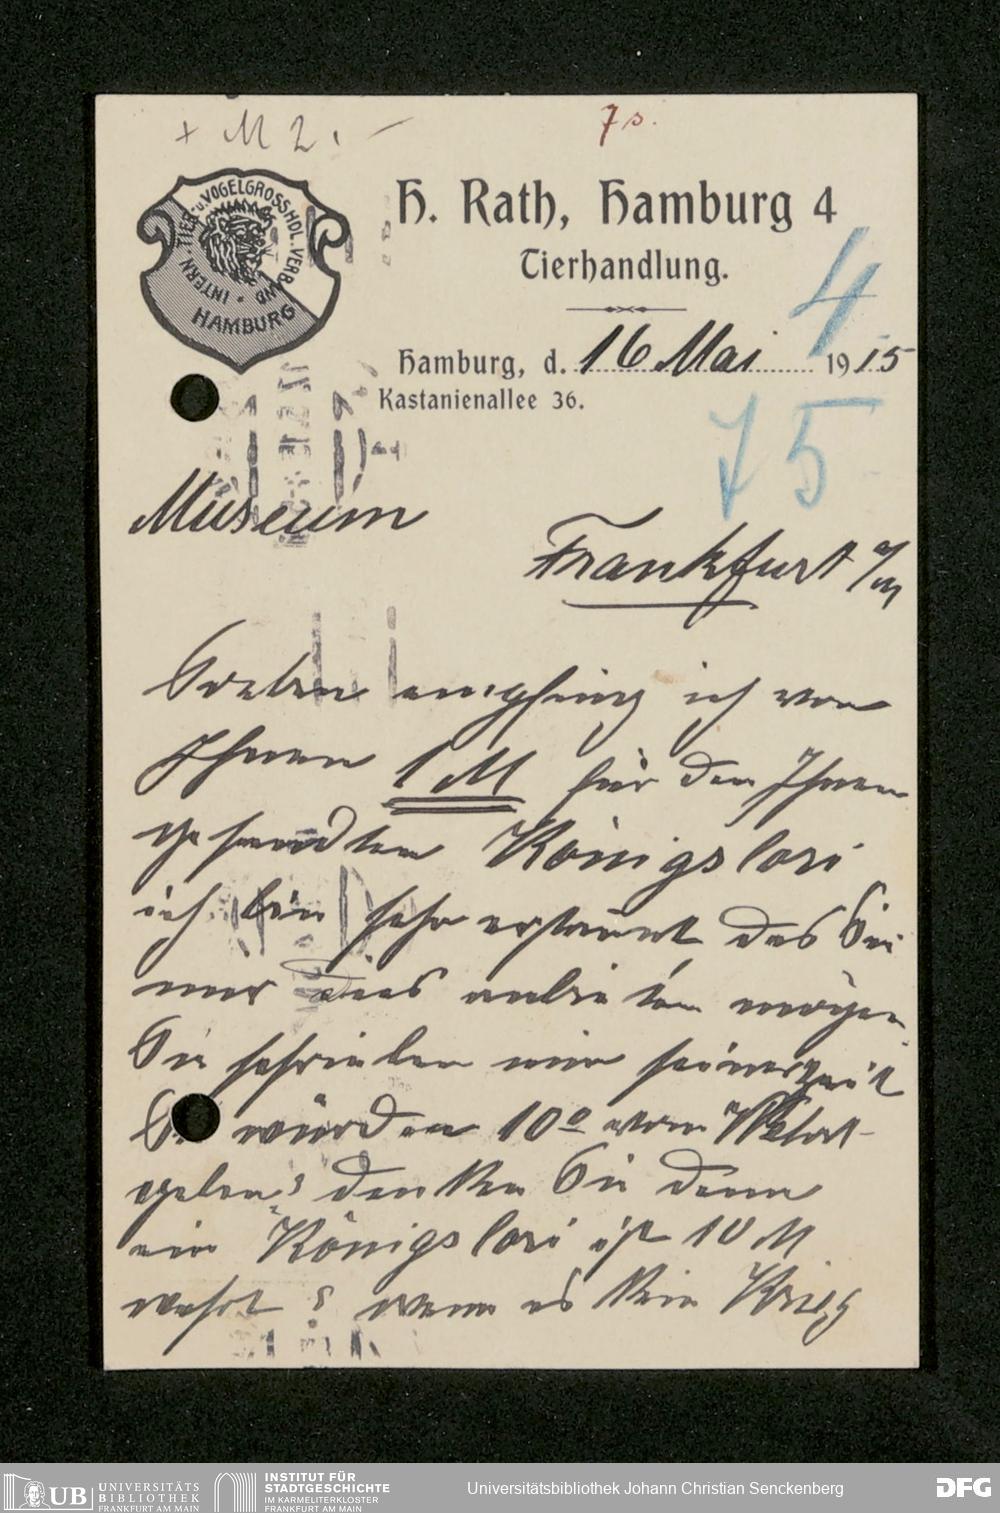 + M 2. –
7 s.
INTERN. TIER- u. VOGELGROSSHDL. VERBAND
HAMBURG
H. Rath, Hamburg 4
Tierhandlung.
4
Hamburg, d. 16 Mai 1915
Kastanienallee 36.
75
Museum
Frankfurt a/M
Soeben empfing ich von
Ihnen 1 M für den Ihnen
gesandten Königslori
ich bin sehr erstaunt das Sie
mir dies anbieten mögen
Sie schrieben mir seinerzeit
Sie würden 10% vom Wert
geben, denken Sie denn
ein Königslori ist 10 M
wehrt? wenn es kein Krieg
UB UNIVERSITÄTS
BIBLIOTHEK
FRANKFURT AM MAIN
INSTITUT FÜR
STADTGESCHICHTE
IM KARMELITERKLOSTER
FRANKFURT AM MAIN
Universitätsbibliothek Johann Christian Senckenberg
DFG